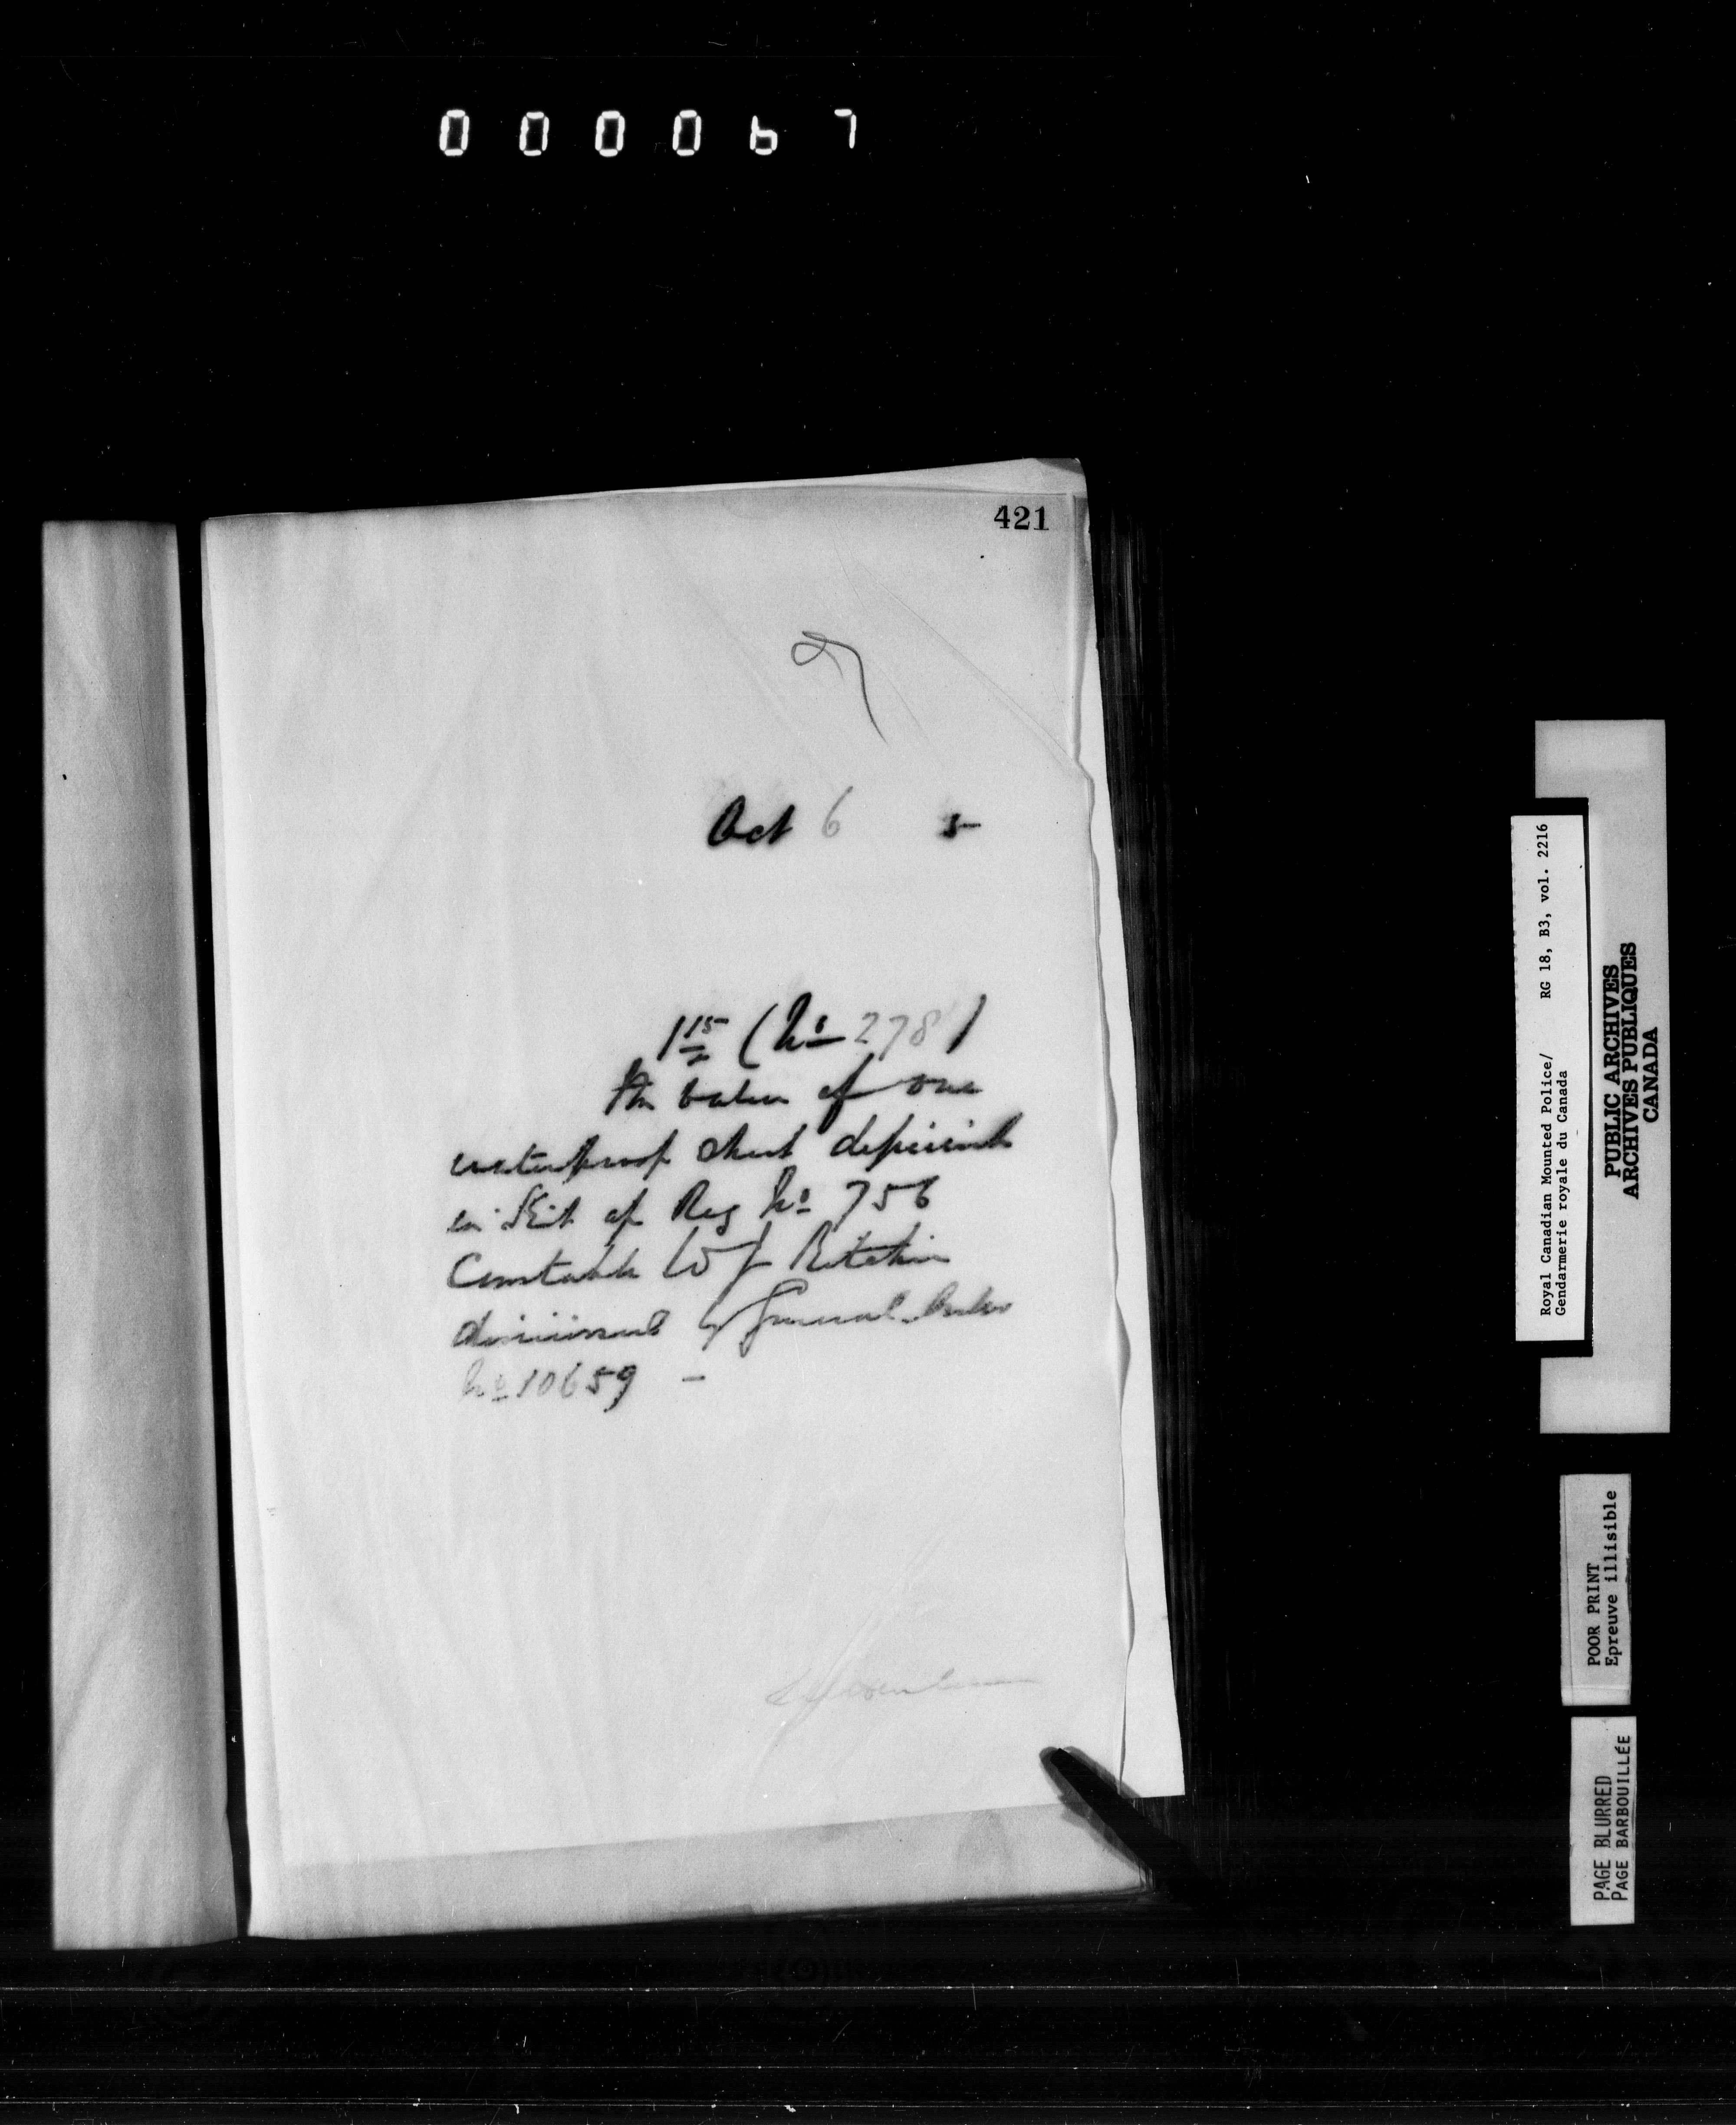 000067
421
Oct 6 5
1 15 (No 278)
the value of one
waterproof sheet deficient
in Kit of Reg No 756
Constable W J
dismissed by General Order
No 10659 –
Royal Canadian Mounted Police/ RG 18, B3, vol. 2216
Gendarmerie royale du Canada
PUBLIC ARCHIVES
ARCHIVES PUBLIQUES
CANADA
POOR PRINT
Epreuve illisible
PAGE BLURRED
PAGE BARBOUILLÉE